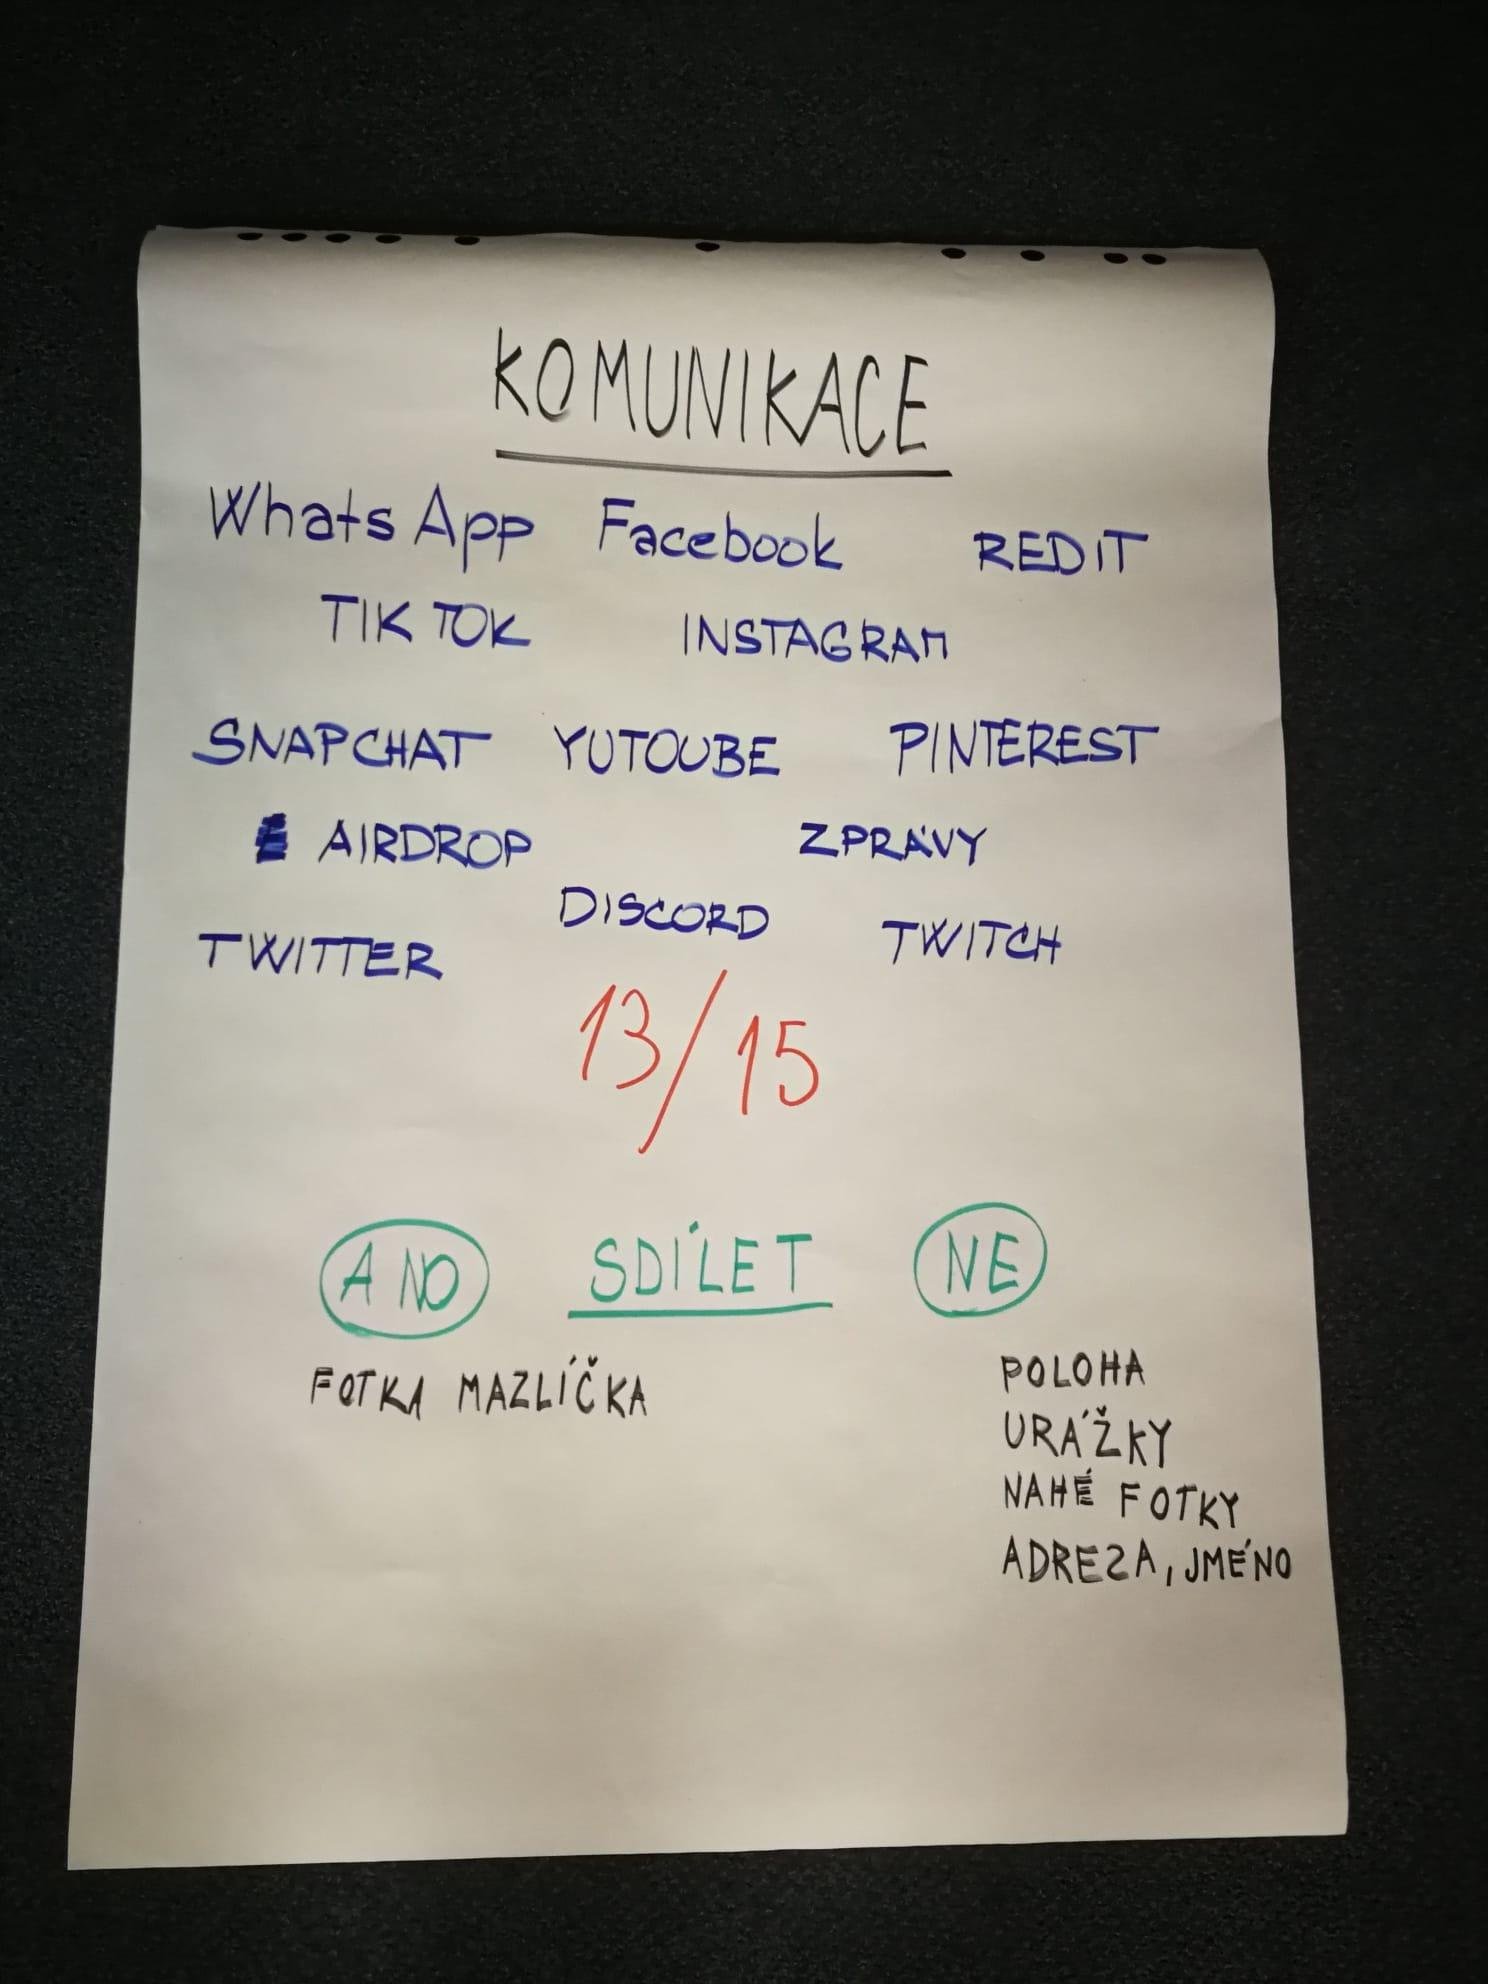 KOMUNIKACE
WhatsApp Facebook REDIT
TIK TOK INSTAGRAM
SNAPCHAT YUTOUBE PINTEREST
AIRDROP ZPRÁVY
DISCORD
TWITTER TWITCH
13/15
ANO SDÍLET NE
FOTKA MAZLÍČKA
POLOHA
URÁŽKY
NAHÉ FOTKY
ADRESA, JMÉNO